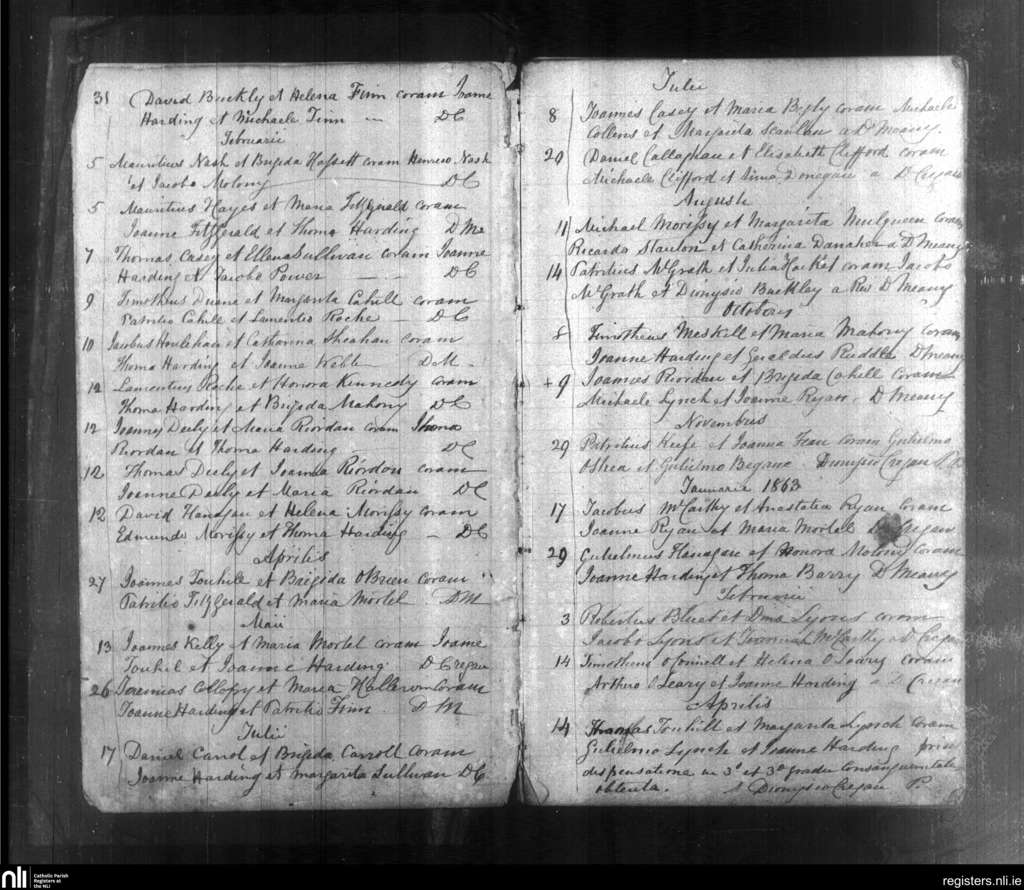 31 David Buckly et Helena Finn coram Joanne
Harding et Michaele Finn — DC
Februarii
5 Mauritius Nash et Brigida Hassett coram Henrico Nash
et Jacobo Molony DC
5 Mauritius Hayes et Maria Fitzgerald coram
Joanne Fitzgerald et Thoma Harding D Me
7 Thomas Casey et Ellena Sullivan coram Joanne
Harding et Jacobo Power — DC
9 Timotheus Duane et Margarita Cahill coram
Patritio Cahill et Laurentio Roche — DC
10 Jacobus Houlehan et Catharina Sheahan coram
Thoma Harding et Joanne Webb D.M.
12 Laurentius Roche et Honora Kennedy coram
Thoma Harding et Brigida Mahony DC
12 Joannes Deely et Maria Riordan coram Thoma
Riordan et Thoma Harding DC
12 Thomas Deely et Joanna Riordan coram
Joanne Deely et Maria Riordan DC
12 David Flanagan et Helena Morissy coram
Edmundo Morissy et Thoma Harding — DC
Aprilis
27 Joannes Touhill et Brigida OBrien coram
Patritio Fitzgerald et Maria Mortel DM
Maii
13 Joannes Kelly et Maria Mortel coram Joanne
Touhil et Joanne Harding D Cregan
26 Jeremias Collopy et Maria coram
Joanne Harding et Patritio Finn. D M
Julii
17 Daniel Carrol et Brigida Carroll coram
Joanne Harding et Margarita Sullivan DC
Julii
8 Joannes Casey et Maria coram Michaele
Collens et Margarita Scanlan a D. Meany.
20 Daniel Callaghan et Elisabeth Clifford coram
Michaele Clifford et Anna Donegan a D Cregan
Augusti
11 Michael Morissy et Margarita Mulqueen coram
Ricardo Stanton et Catherina Danaher a D Meany
14 Patritius McGrath et Julia Hacket coram Jacobo
McGrath et Dionysio Buckley a Rev D Meany
Octobris
8 Timotheus Meskell et Maria Mahony coram
Joanne Harding et Geraldus Ruddle D Meany
+ 9 Joannes Riordan et Brigida Cahill coram
Michaele Lynch et Joanne Ryan D Meany
Novembris
29 Patritius Keefe et Joanna coram Gulielmo
OShea et Gulielmo Begane Dionysio Cregan
Januarii 1863
17 Jacobus McCarthy et Anastatia Ryan coram
Joanne Ryan et Maria Mortel D Cregan
29 Gulielmus Flanagan et Honora Molony coram
Joanne Harding et Thoma Barry D Meany
Februarii
3 Robertus et Lyons coram
Jacobo Lyons et McCarthy a D Cregan
14 Timotheus OConnell et Helena OLeary coram
Arthuro OLeary et Joanne Harding a D Cregan
Aprilis
14 Thomas Touhill et Margarita Lynch coram
Gulielmo Lynch et Joanne Harding
dispensatione in 3º et 3º gradu consanguinitatis
obtenta. a Dionysio Cregan P.
nli Catholic Parish
Registers at
the NLI
registers.nli.ie